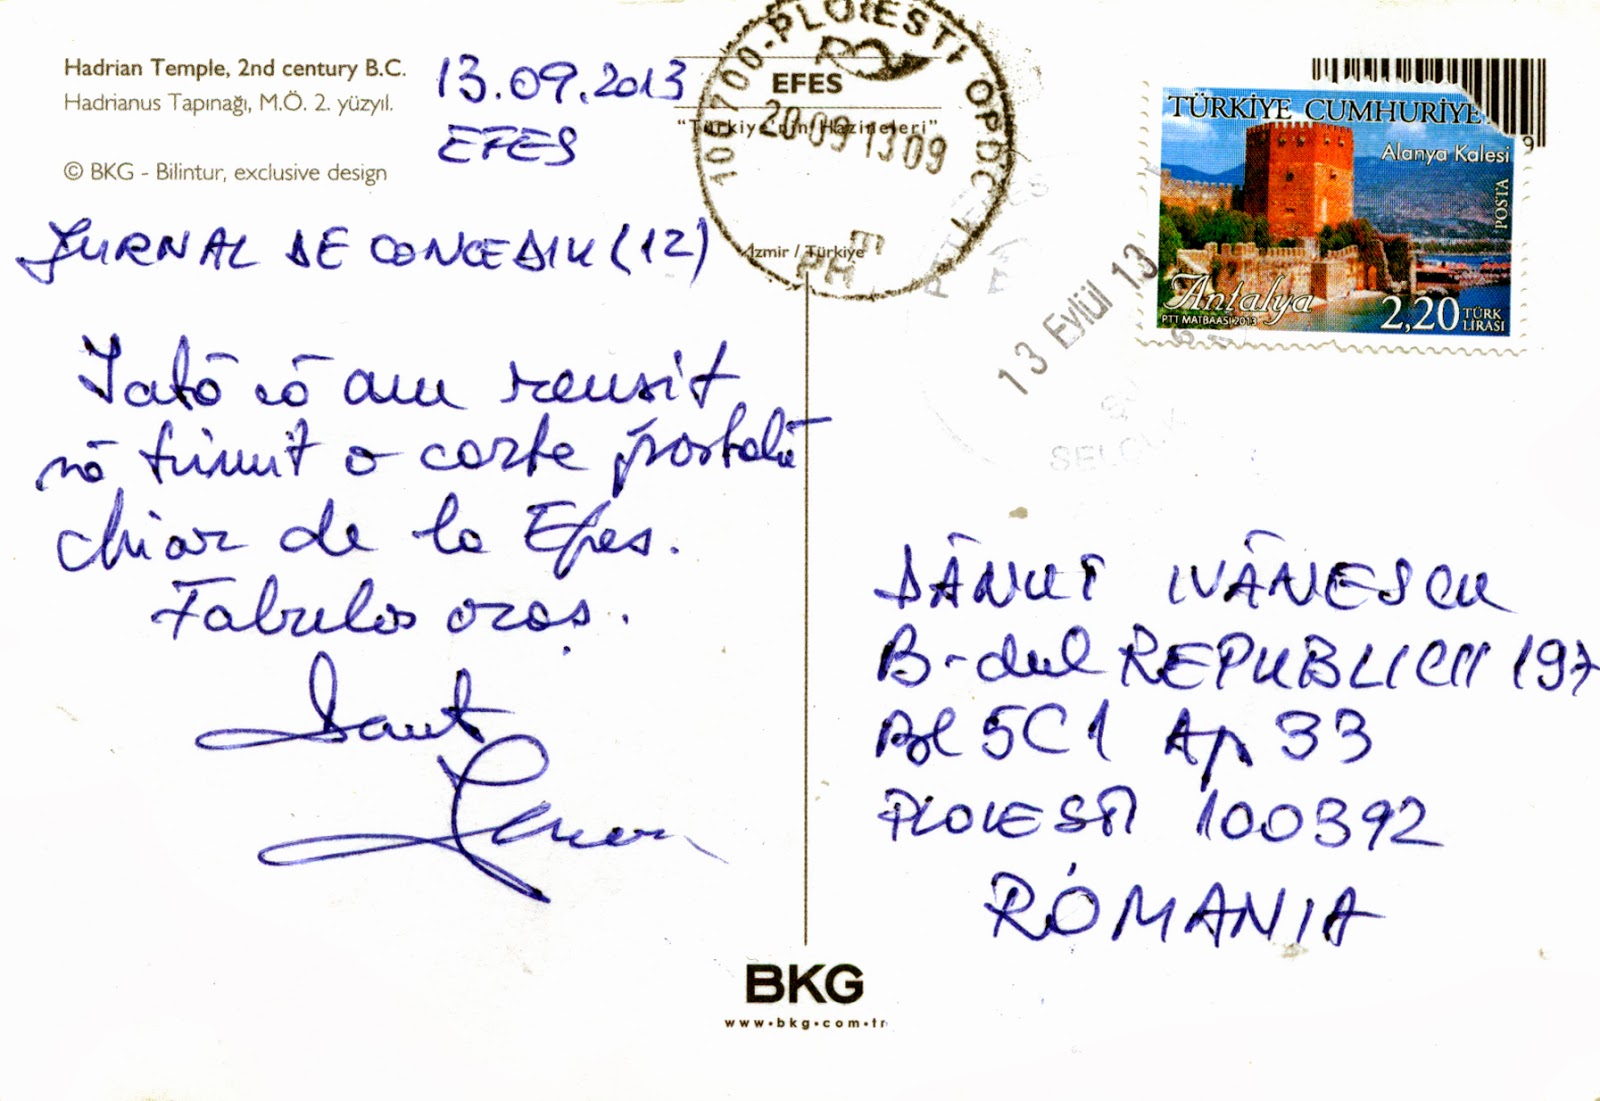 Hadrian Temple, 2nd century B.C.
Hadrianus Tapınağı, M.Ö. 2. yüzyıl.
© BKG - Bilintur, exclusive design
13.09.2013
EFES
JURNAL DE CONCEDIU (12)
Iată că am reusit
să trimit o carte poștală
chiar de la Efes.
Fabulos oraș.
Danut
EFES
"Türkiye'nin Hazineleri"
Izmir / Türkiye
100700-PLOIESTI OPDC 1
20-09 13 09
TÜRKİYE CUMHURİYE
Alanya Kalesi
POSTA
Antalya
PTT MATBAASI 2013
2,20 TÜRK LİRASI
9
13 Eylül 13
SELÇUK
DĂNUT IVĂNESCU
B-dul REPUBLICII 197
Bl 5C1 Ap 33
PLOIESTI 100392
ROMANIA
BKG
www.bkg.com.tr